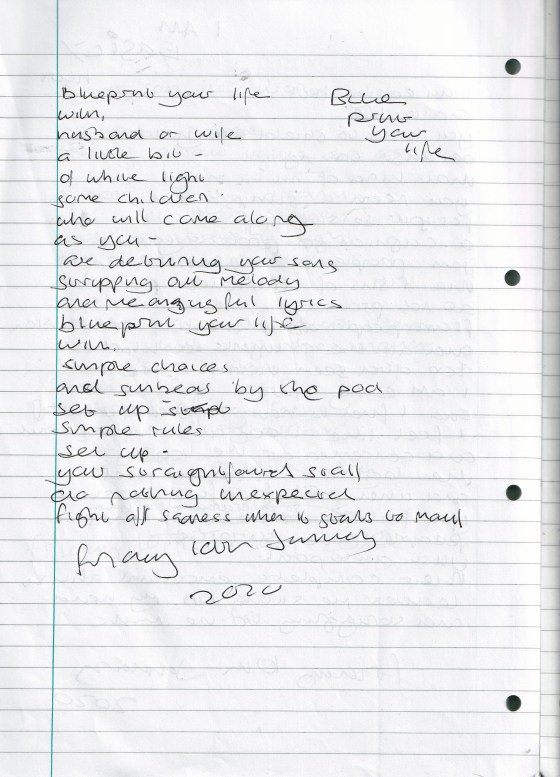 Blue
print
your
life
blueprint your life
with,
husband or wife
a little bit -
of white light
some children.
who will come along
as you -
are defining your song
stripping out melody
and meaningful lyrics
blueprint your life
with.
simple choices
and sunbeds by the pool
set up
simple rules
set up -
your straightforward stall
do nothing unexpected
fight off sadness when it starts to maul
2020